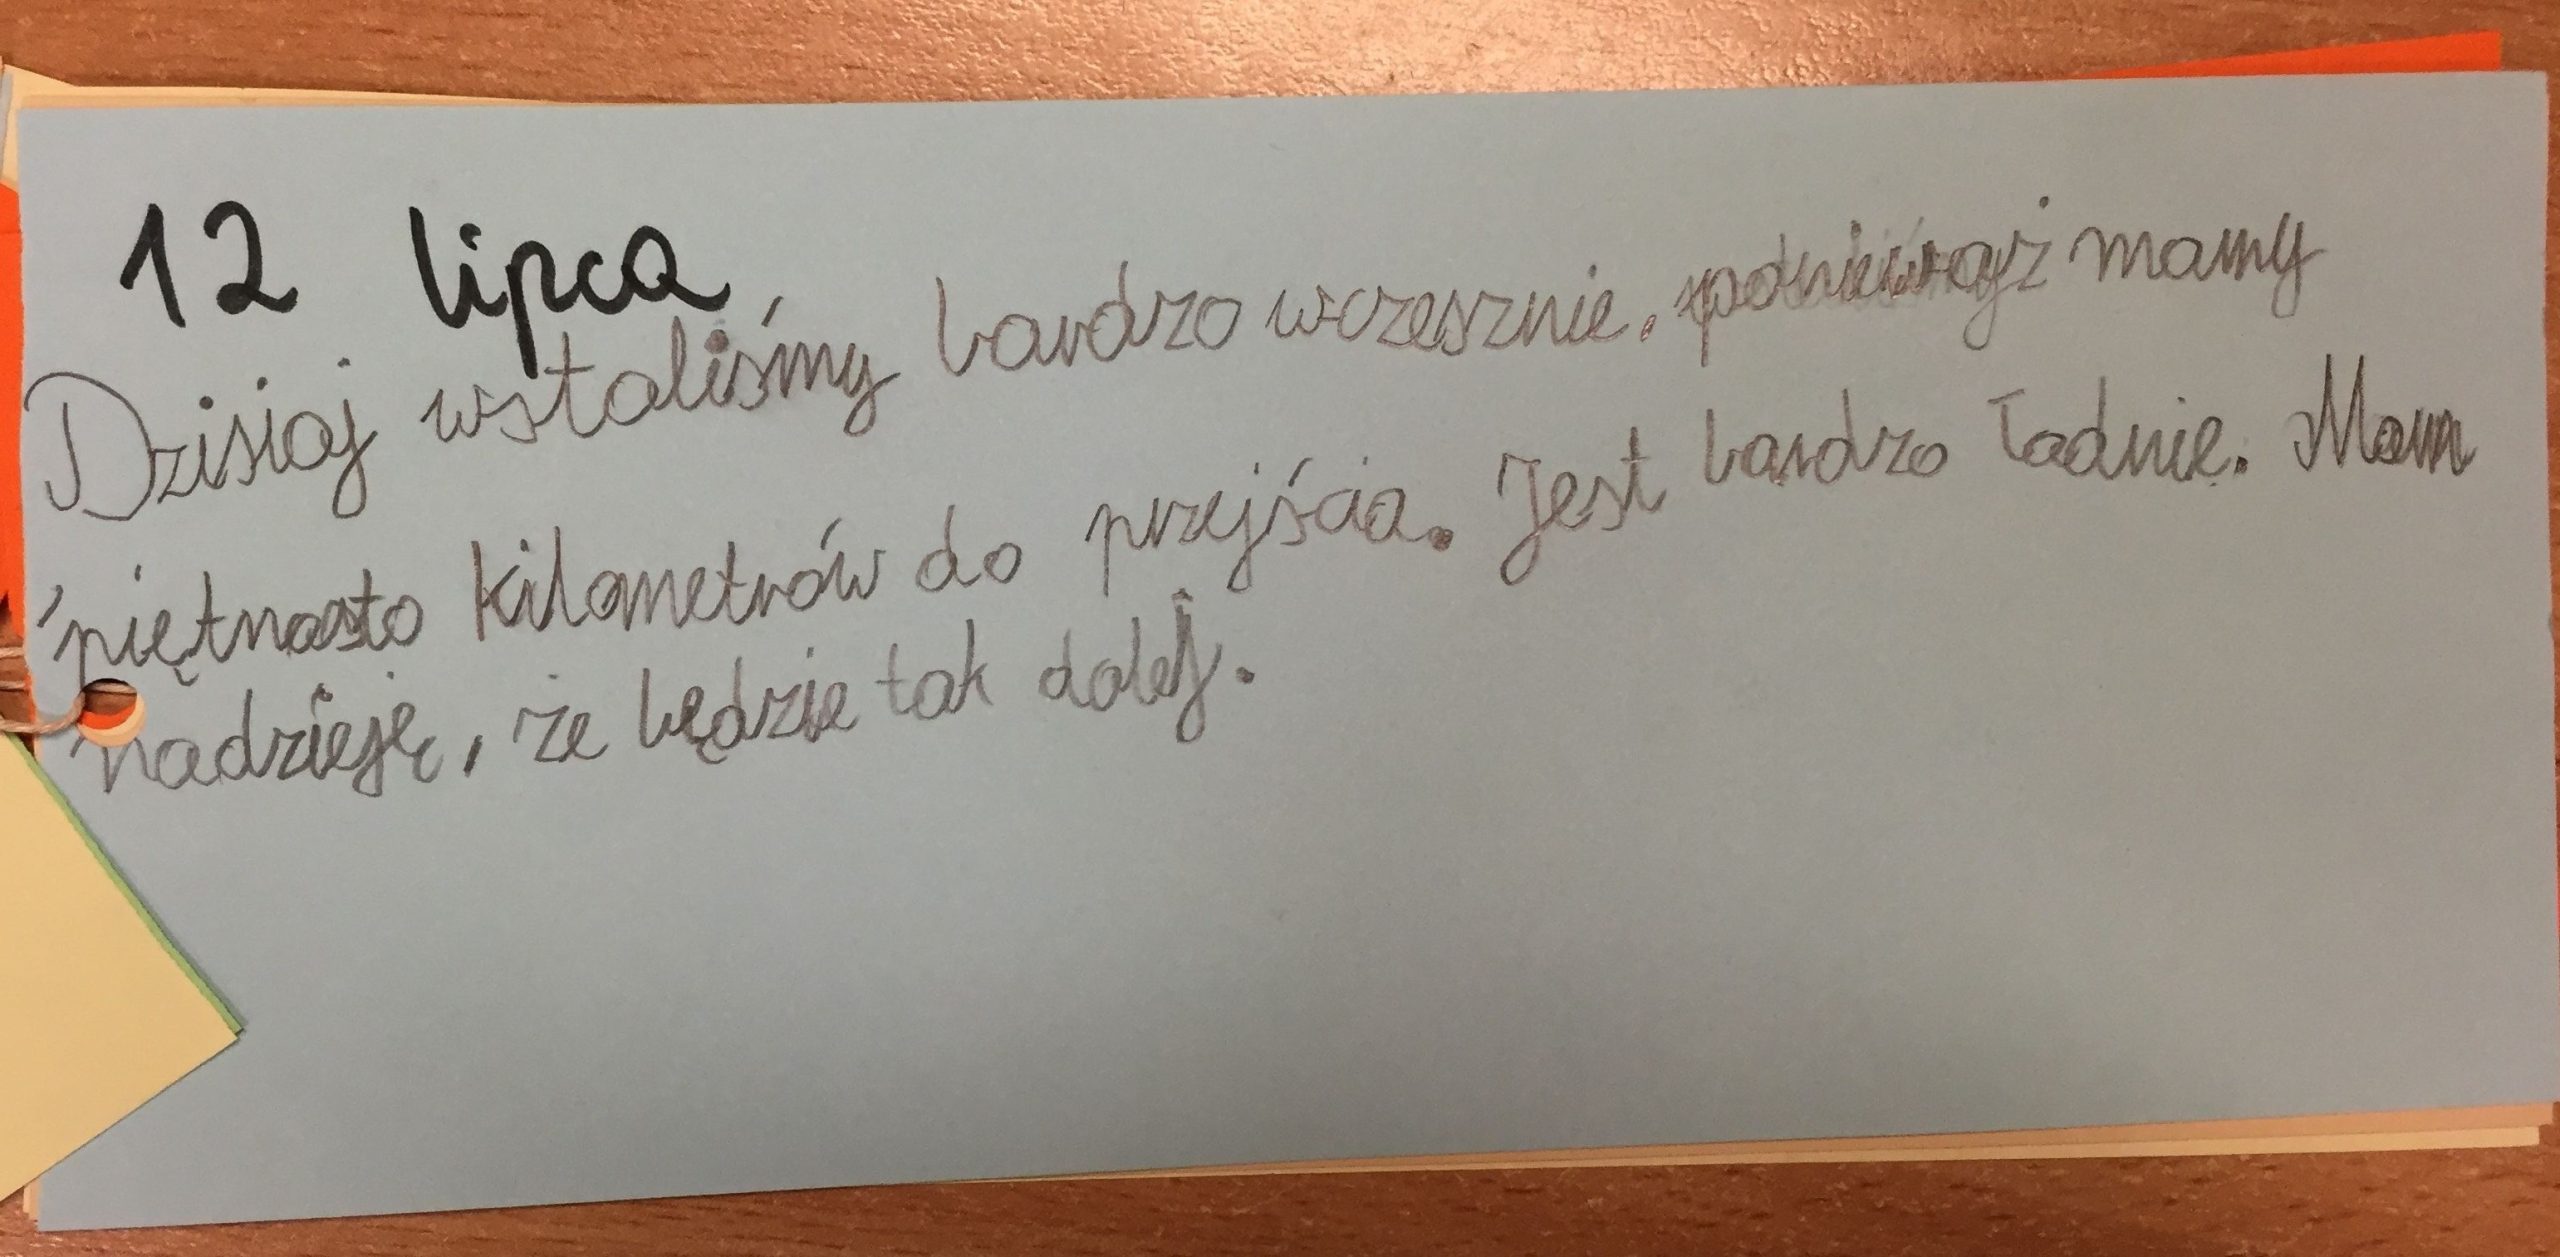 12 lipca
Dzisiaj wstaliśmy bardzo wczesznie. ponieważ mamy
piętnasto kilometrów do przejścia. Jest bardzo ładnie. Mam
nadzieję, że będzie tak dalej.